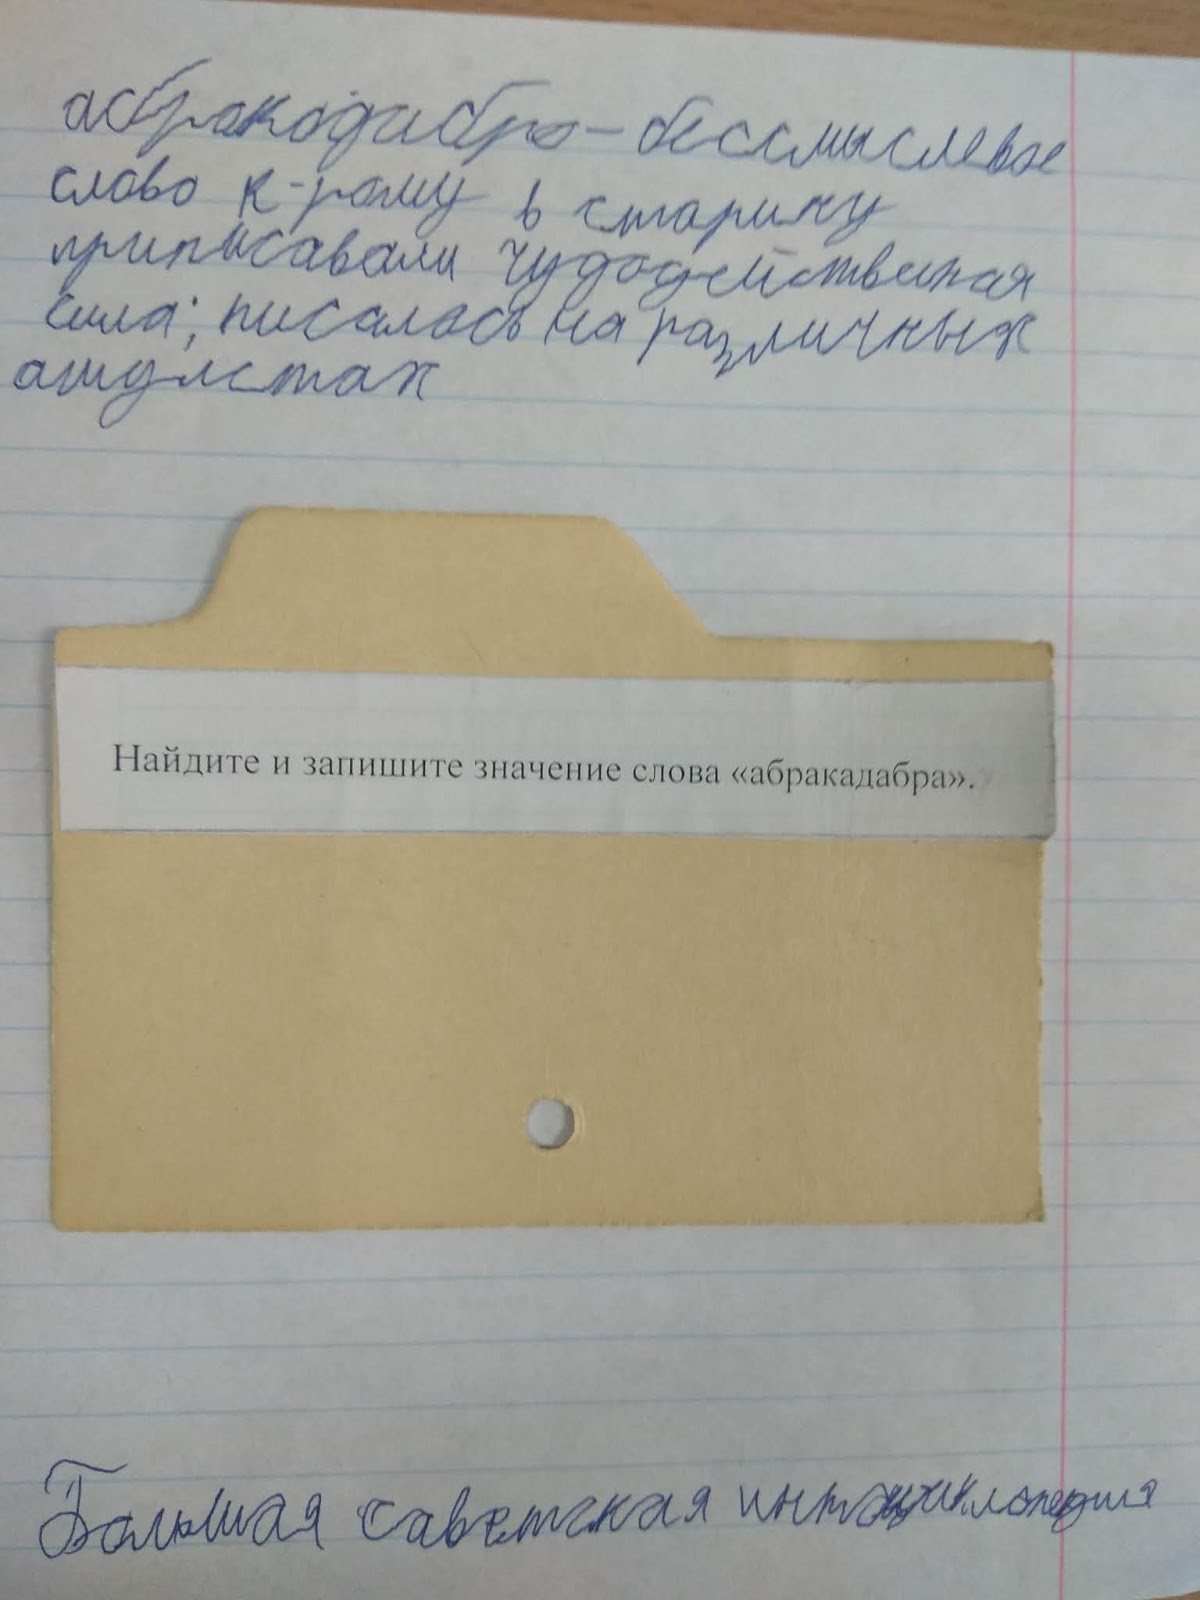 абракодабра – бессмыслевое
слово к-рому в старину
приписавали чудодействиная
сила; писалось на различных
амулетах
Найдите и запишите значение слова «абракадабра».
Большая саветская